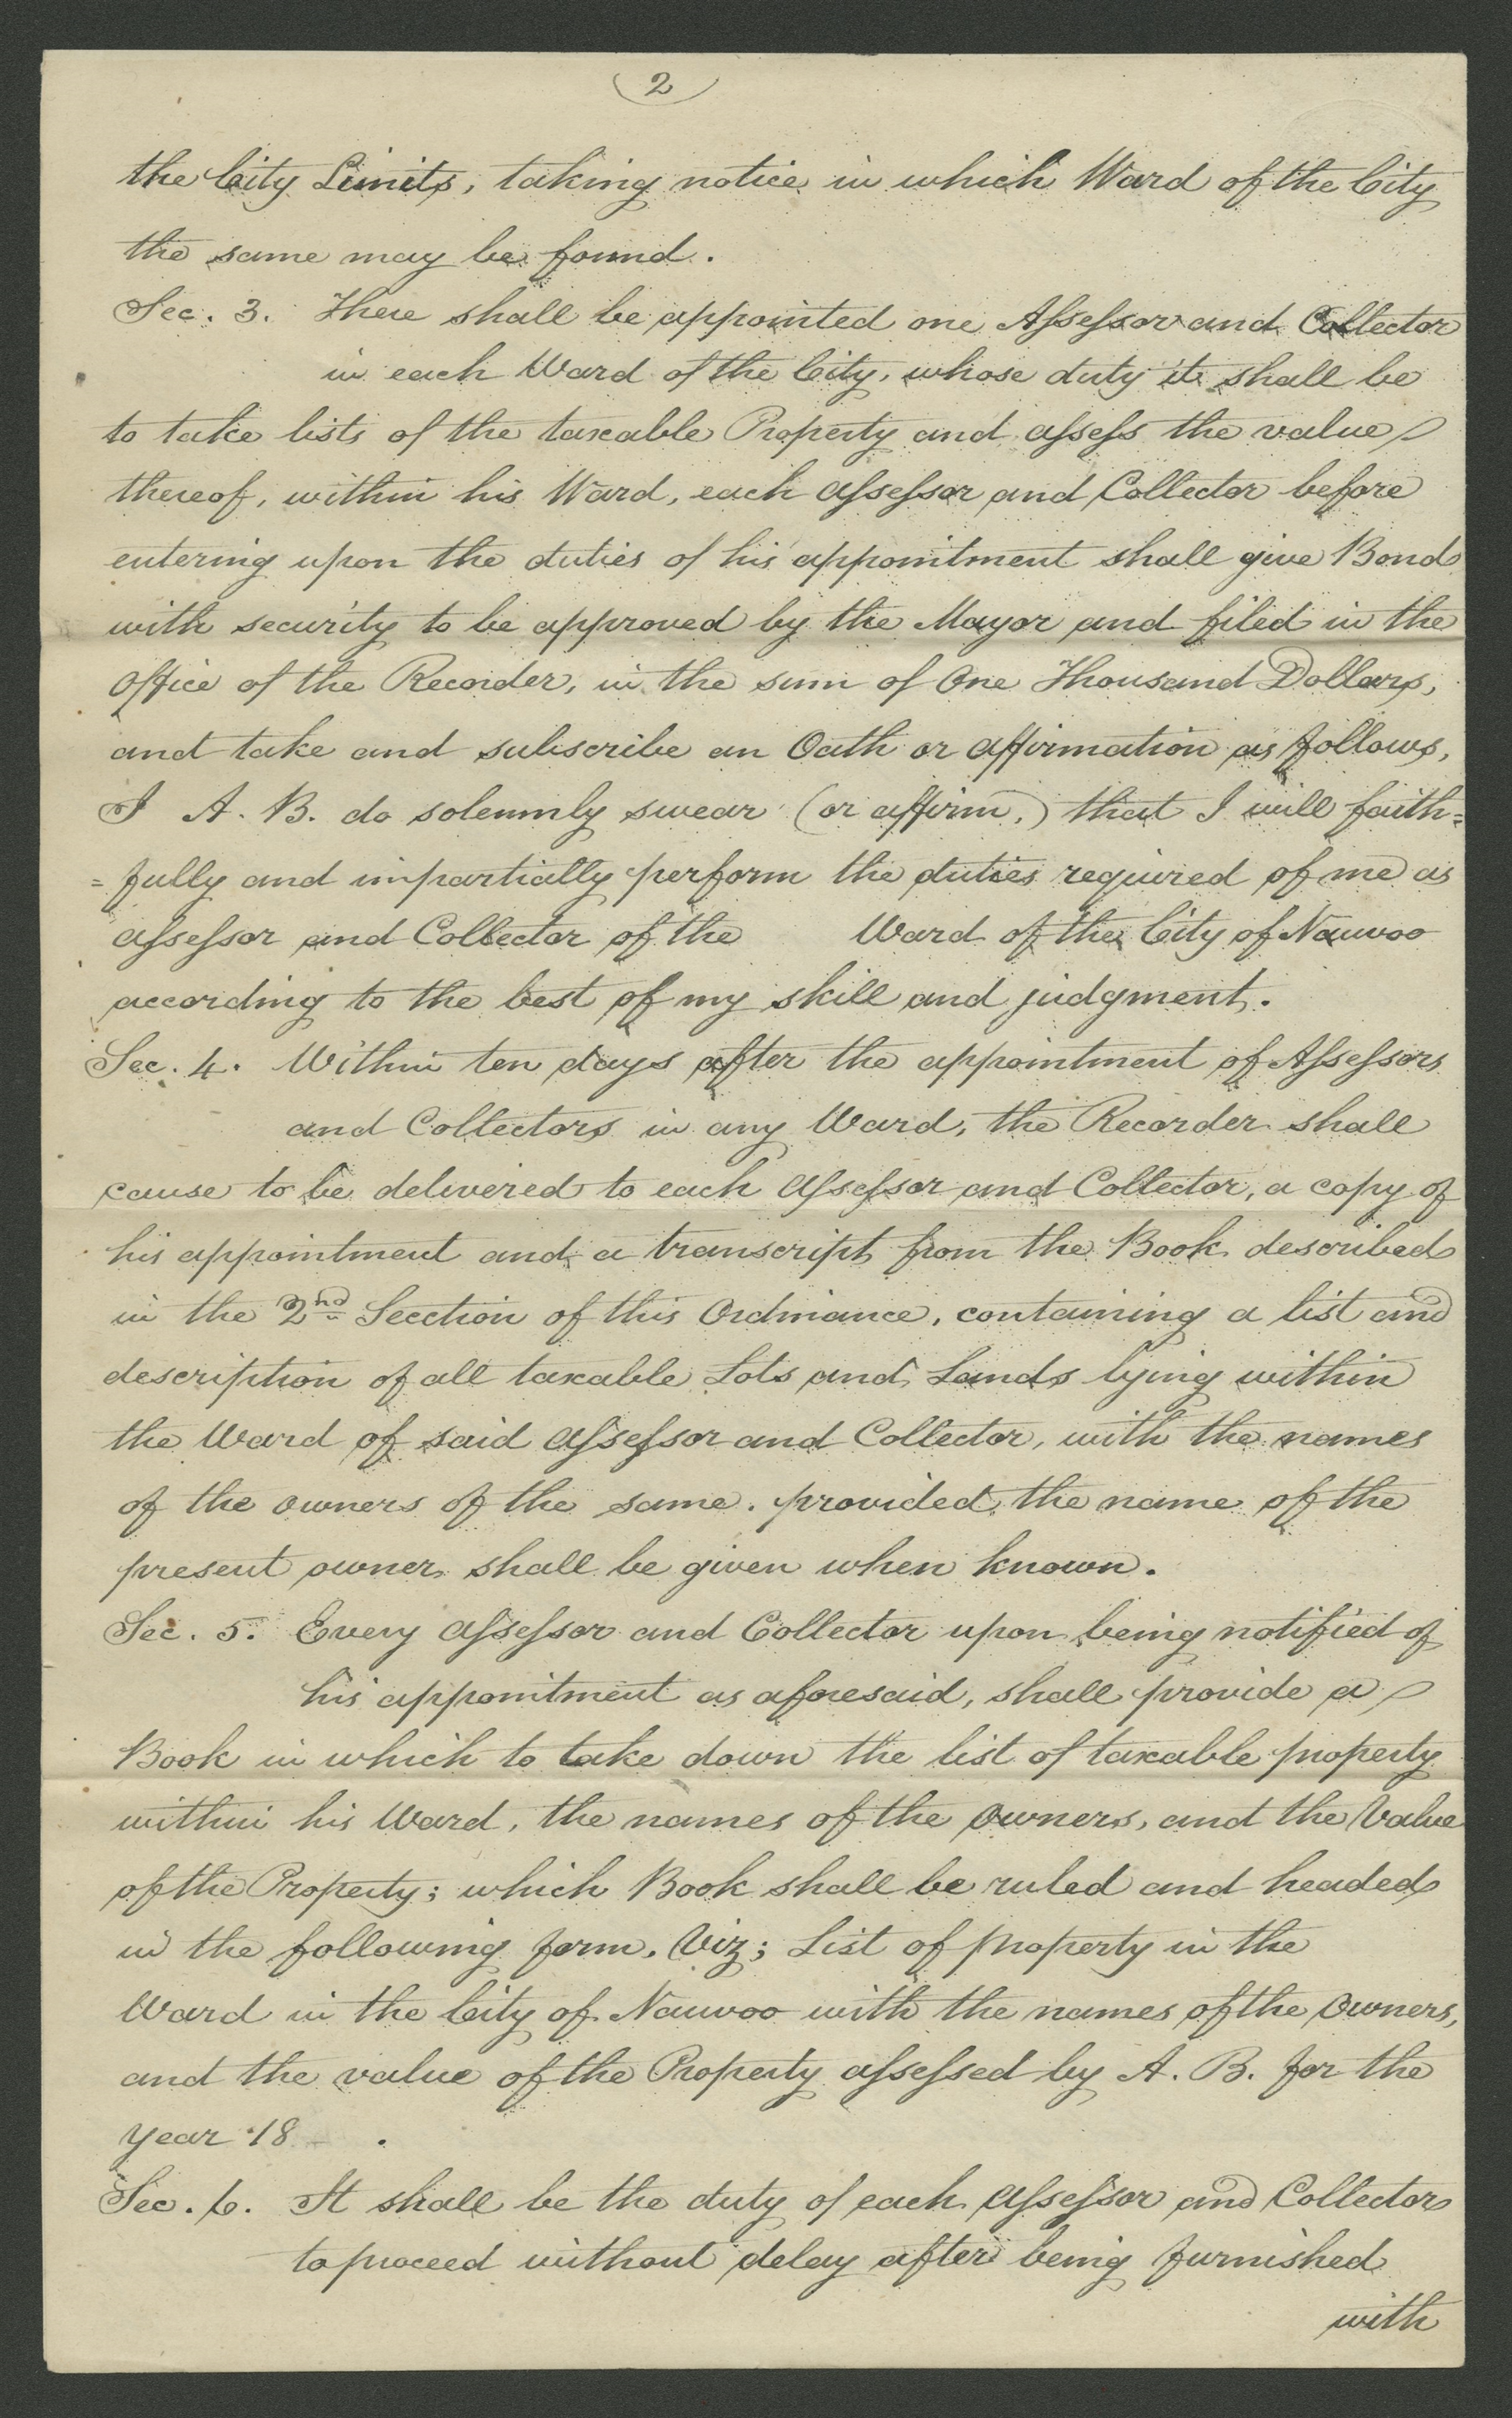 (2)
the City Limits, taking notice in which Ward of the City
the same may be found.
Sec. 3. There shall be appointed one Assessor and Collector
in each Ward of the City, whose duty it shall be
to take lists of the taxable Property and assess the value
thereof, within his Ward, each assessor and Collector before
entering upon the duties of his appointment shall give Bond
with security to be approved by the Mayor and filed in the
Office of the Recorder, in the sum of One Thousand Dollars,
and take and subscribe an Oath or affirmation as follows,
I A. B. do solemnly swear (or affirm,) that I will faith=
=fully and impartially perform the duties required of me as
assessor and Collector of the Ward of the City of Nauvoo
according to the best of my skill and judgment.
Sec. 4. Within ten days after the appointment of Assessors
and Collectors in any Ward, the Recorder shall
cause to be delivered to each assessor and Collector, a copy of
his appointment and a transcript from the Book described
in the 2nd Section of this Ordinance, containing a list and
description of all taxable Lots and Lands lying within
the Ward of said assessor and Collector, with the names
of the owners of the same. provided the name of the
present owner shall be given when known.
Sec. 5. Every assessor and Collector upon being notified of
his appointment as aforesaid, shall provide a
Book in which to take down the list of taxable property
within his Ward, the names of the owners, and the Value
of the Property; which Book shall be ruled and headed
in the following form, Viz; List of property in the
Ward in the City of Nauvoo with the names of the owners,
and the value of the Property assessed by A. B. for the
year 18 .
Sec. 6. It shall be the duty of each assessor and Collector
to proceed without delay after being furnished
with